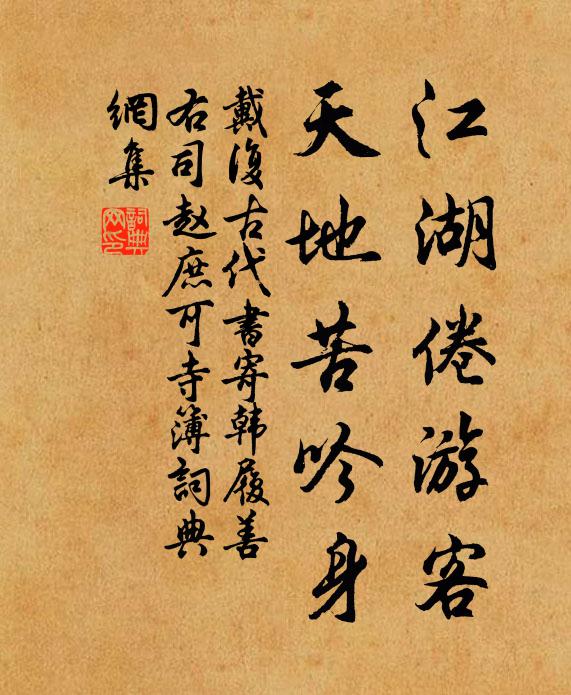 江湖倦游客
天地苦吟身
戴復古代書寄韩履善
右司赵庶可寺簿詞典
網集
詞典
网印